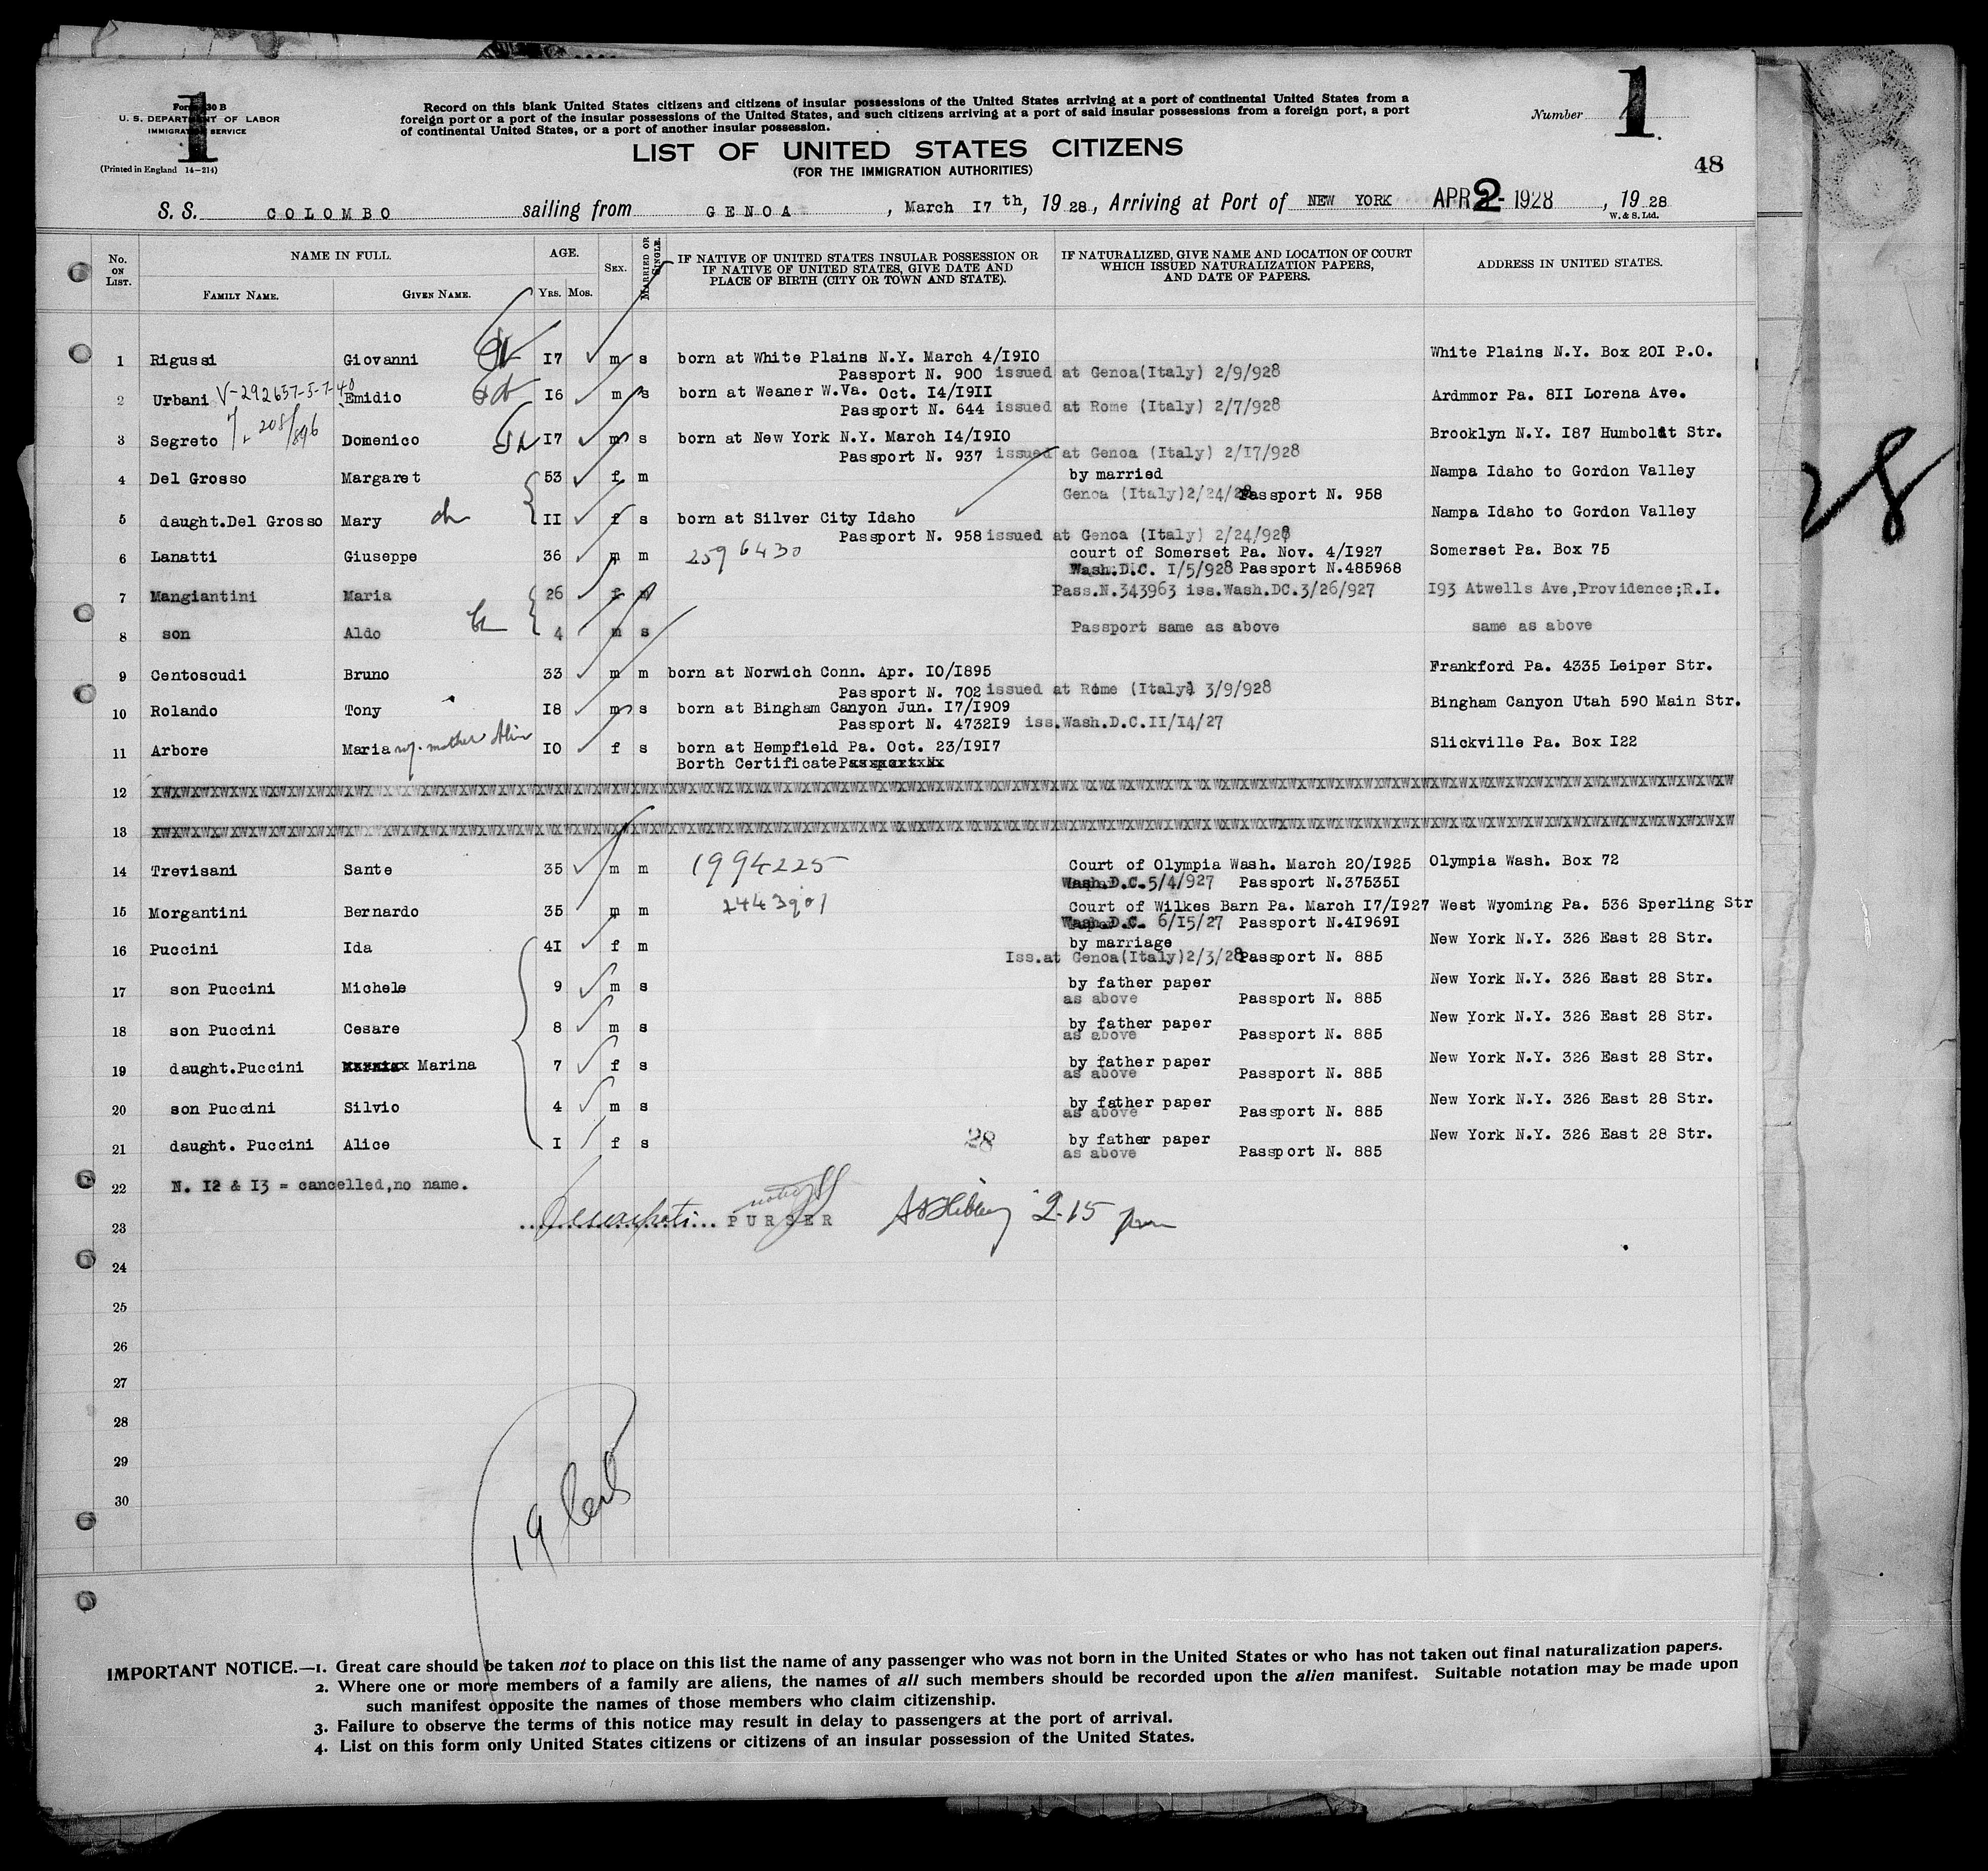 1
Form 630 B
U. S. DEPARTMENT OF LABOR
IMMIGRATION SERVICE
(Printed in England 14-214)
Record on this blank United States citizens and citizens of insular possessions of the United States arriving at a port of continental United States from a
foreign port or a port of the insular possessions of the United States, and such citizens arriving at a port of said insular possessions from a foreign port, a port
of continental United States, or a port of another insular possession.
Number 1
LIST OF UNITED STATES CITIZENS
(FOR THE IMMIGRATION AUTHORITIES)
48
S. S. COLOMBO sailing from GENOA, March I7 th, 1928, Arriving at Port of NEW YORK APR 2 - 1928, 1928
W. & S. Ltd.
No. ON LIST. NAME IN FULL. FAMILY NAME. GIVEN NAME. AGE. YRS. MOS. SEX. MARRIED OR SINGLE. IF NATIVE OF UNITED STATES INSULAR POSSESSION OR IF NATIVE OF UNITED STATES, GIVE DATE AND PLACE OF BIRTH (CITY OR TOWN AND STATE). IF NATURALIZED, GIVE NAME AND LOCATION OF COURT WHICH ISSUED NATURALIZATION PAPERS, AND DATE OF PAPERS. ADDRESS IN UNITED STATES.
1 Rigussi Giovanni I7 m s born at White Plains N.Y. March 4/I9I0 White Plains N.Y. Box 20I P.O.
Passport N. 900 issued at Genoa(Italy) 2/9/928
2 Urbani V-292657-5-7-40 Emidio I6 m s born at Weaner W.Va. Oct. I4/I9II Ardmmor Pa. 8II Lorena Ave.
208/896 Passport N. 644 issued at Rome (Italy) 2/7/928
3 Segreto Domenico I7 m s born at New York N.Y. March I4/I9I0 Brooklyn N.Y. I87 Humboldt Str.
Passport N. 937 issued at Genoa (Italy) 2/I7/928
4 Del Grosso Margaret 53 f m by married Nampa Idaho to Gordon Valley
Genoa (Italy)2/24/28 Passport N. 958
5 daught.Del Grosso Mary ch II f s born at Silver City Idaho Nampa Idaho to Gordon Valley
Passport N. 958 issued at Genoa (Italy) 2/24/928
6 Lanatti Giuseppe 36 m m 2596430 court of Somerset Pa. Nov. 4/I927 Somerset Pa. Box 75
Wash.D.C. I/5/928 Passport N.485968
7 Mangiantini Maria 26 f m Pass.N.343963 iss.Wash.DC.3/26/927 I93 Atwells Ave,Providence;R.I.
8 son Aldo ch 4 m s Passport same as above same as above
9 Centoscudi Bruno 33 m m born at Norwich Conn. Apr. I0/I895 Frankford Pa. 4335 Leiper Str.
Passport N. 702 issued at Rome (Italy) 3/9/928
10 Rolando Tony I8 m s born at Bingham Canyon Jun. I7/I909 Bingham Canyon Utah 590 Main Str.
Passport N. 4732I9 iss.Wash.D.C.II/I4/27
11 Arbore Maria w/. mother Alien I0 f s born at Hempfield Pa. Oct. 23/I9I7 Slickville Pa. Box I22
Borth Certificate
12
13
14 Trevisani Sante 35 m m 1994225 Court of Olympia Wash. March 20/I925 Olympia Wash. Box 72
Wash.D.C.5/4/927 Passport N.37535I
15 Morgantini Bernardo 35 m m 2443901 Court of Wilkes Barn Pa. March I7/I927 West Wyoming Pa. 536 Sperling Str
Wash.D.C. 6/I5/27 Passport N.4I969I
16 Puccini Ida 4I f m by marriage New York N.Y. 326 East 28 Str.
Iss.at Genoa(Italy)2/3/28 Passport N. 885
17 son Puccini Michele 9 m s by father paper New York N.Y. 326 East 28 Str.
as above Passport N. 885
18 son Puccini Cesare 8 m s by father paper New York N.Y. 326 East 28 Str.
as above Passport N. 885
19 daught.Puccini Marina 7 f s by father paper New York N.Y. 326 East 28 Str.
as above Passport N. 885
20 son Puccini Silvio 4 m s by father paper New York N.Y. 326 East 28 Str.
as above Passport N. 885
21 daught. Puccini Alice I f s 28 by father paper New York N.Y. 326 East 28 Str.
as above Passport N. 885
22 N. I2 & I3 = cancelled,no name.
23 PURSER 2-15 pm
24
25
26
27
28
29
30
19
28
IMPORTANT NOTICE.—1. Great care should be taken not to place on this list the name of any passenger who was not born in the United States or who has not taken out final naturalization papers.
2. Where one or more members of a family are aliens, the names of all such members should be recorded upon the alien manifest. Suitable notation may be made upon
such manifest opposite the names of those members who claim citizenship.
3. Failure to observe the terms of this notice may result in delay to passengers at the port of arrival.
4. List on this form only United States citizens or citizens of an insular possession of the United States.